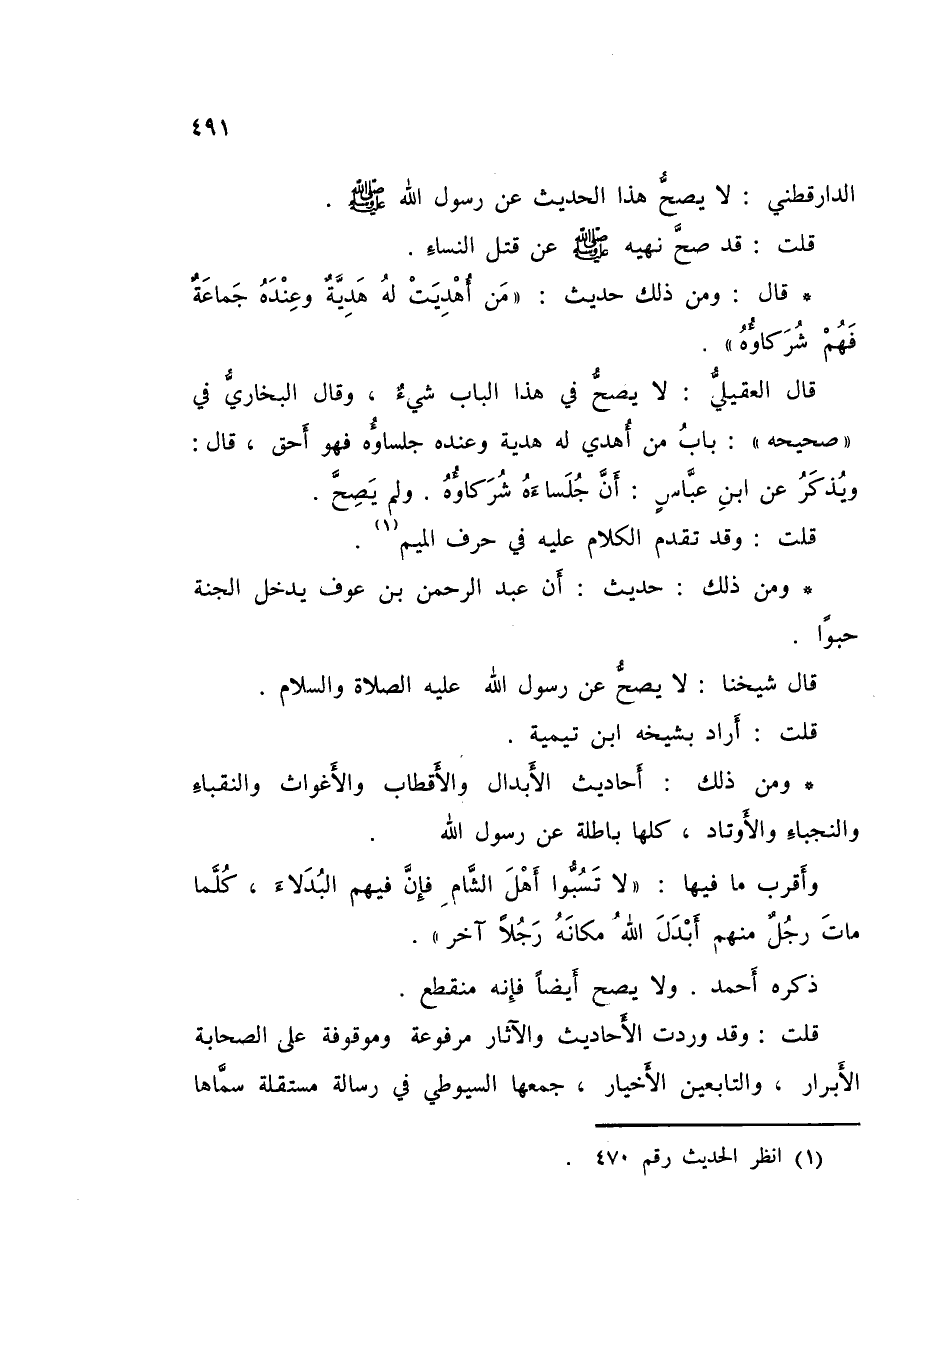 ٤٩١
الدارقطني : لا يصحُّ هذا الحديث عن رسول الله ﷺ .
قلت : قد صحَّ نهيه ﷺ عن قتل النساء .
* قال : ومن ذلك حديث : «مَن أُهْدِيَتْ لهُ هَدِيَّةٌ وعِنْدَهُ جَماعَةٌ
فَهُمْ شُرَكاؤُهُ» .
قال العقيليُّ : لا يصحُّ في هذا الباب شيءٌ ، وقال البخاريُّ في
«صحيحه» : بابُ من أُهدي له هدية وعنده جلساؤُه فهو أَحق ، قال :
ويُذكَرُ عن ابنِ عبَّاسٍ : أَنَّ جُلَساءَهُ شُرَكاؤُهُ . ولم يَصِحَّ .
قلت : وقد تقدم الكلام عليه في حرف الميم(١) .
* ومن ذلك : حديث : أَن عبد الرحمن بن عوف يدخل الجنة
حبوًا .
قال شيخنا : لا يصحُّ عن رسول الله عليه الصلاة والسلام .
قلت : أَراد بشيخه ابن تيمية .
* ومن ذلك : أَحاديث الأَبدال والأَقطاب والأَغواث والنقباء
والنجباء والأَوتاد ، كلها باطلة عن رسول الله .
وأَقرب ما فيها : «لا تَسُبُّوا أَهْلَ الشَّامِ فإِنَّ فيهم البُدَلاءَ ، كُلَّما
ماتَ رجُلٌ منهم أَبْدَلَ اللهُ مكانَهُ رَجُلاً آخر» .
ذكره أَحمد . ولا يصح أَيضاً فإِنه منقطع .
قلت : وقد وردت الأَحاديث والآثار مرفوعة وموقوفة على الصحابة
الأَبرار ، والتابعين الأَخيار ، جمعها السيوطي في رسالة مستقلة سمَّاها
(١) انظر الحديث رقم ٤٧٠ .